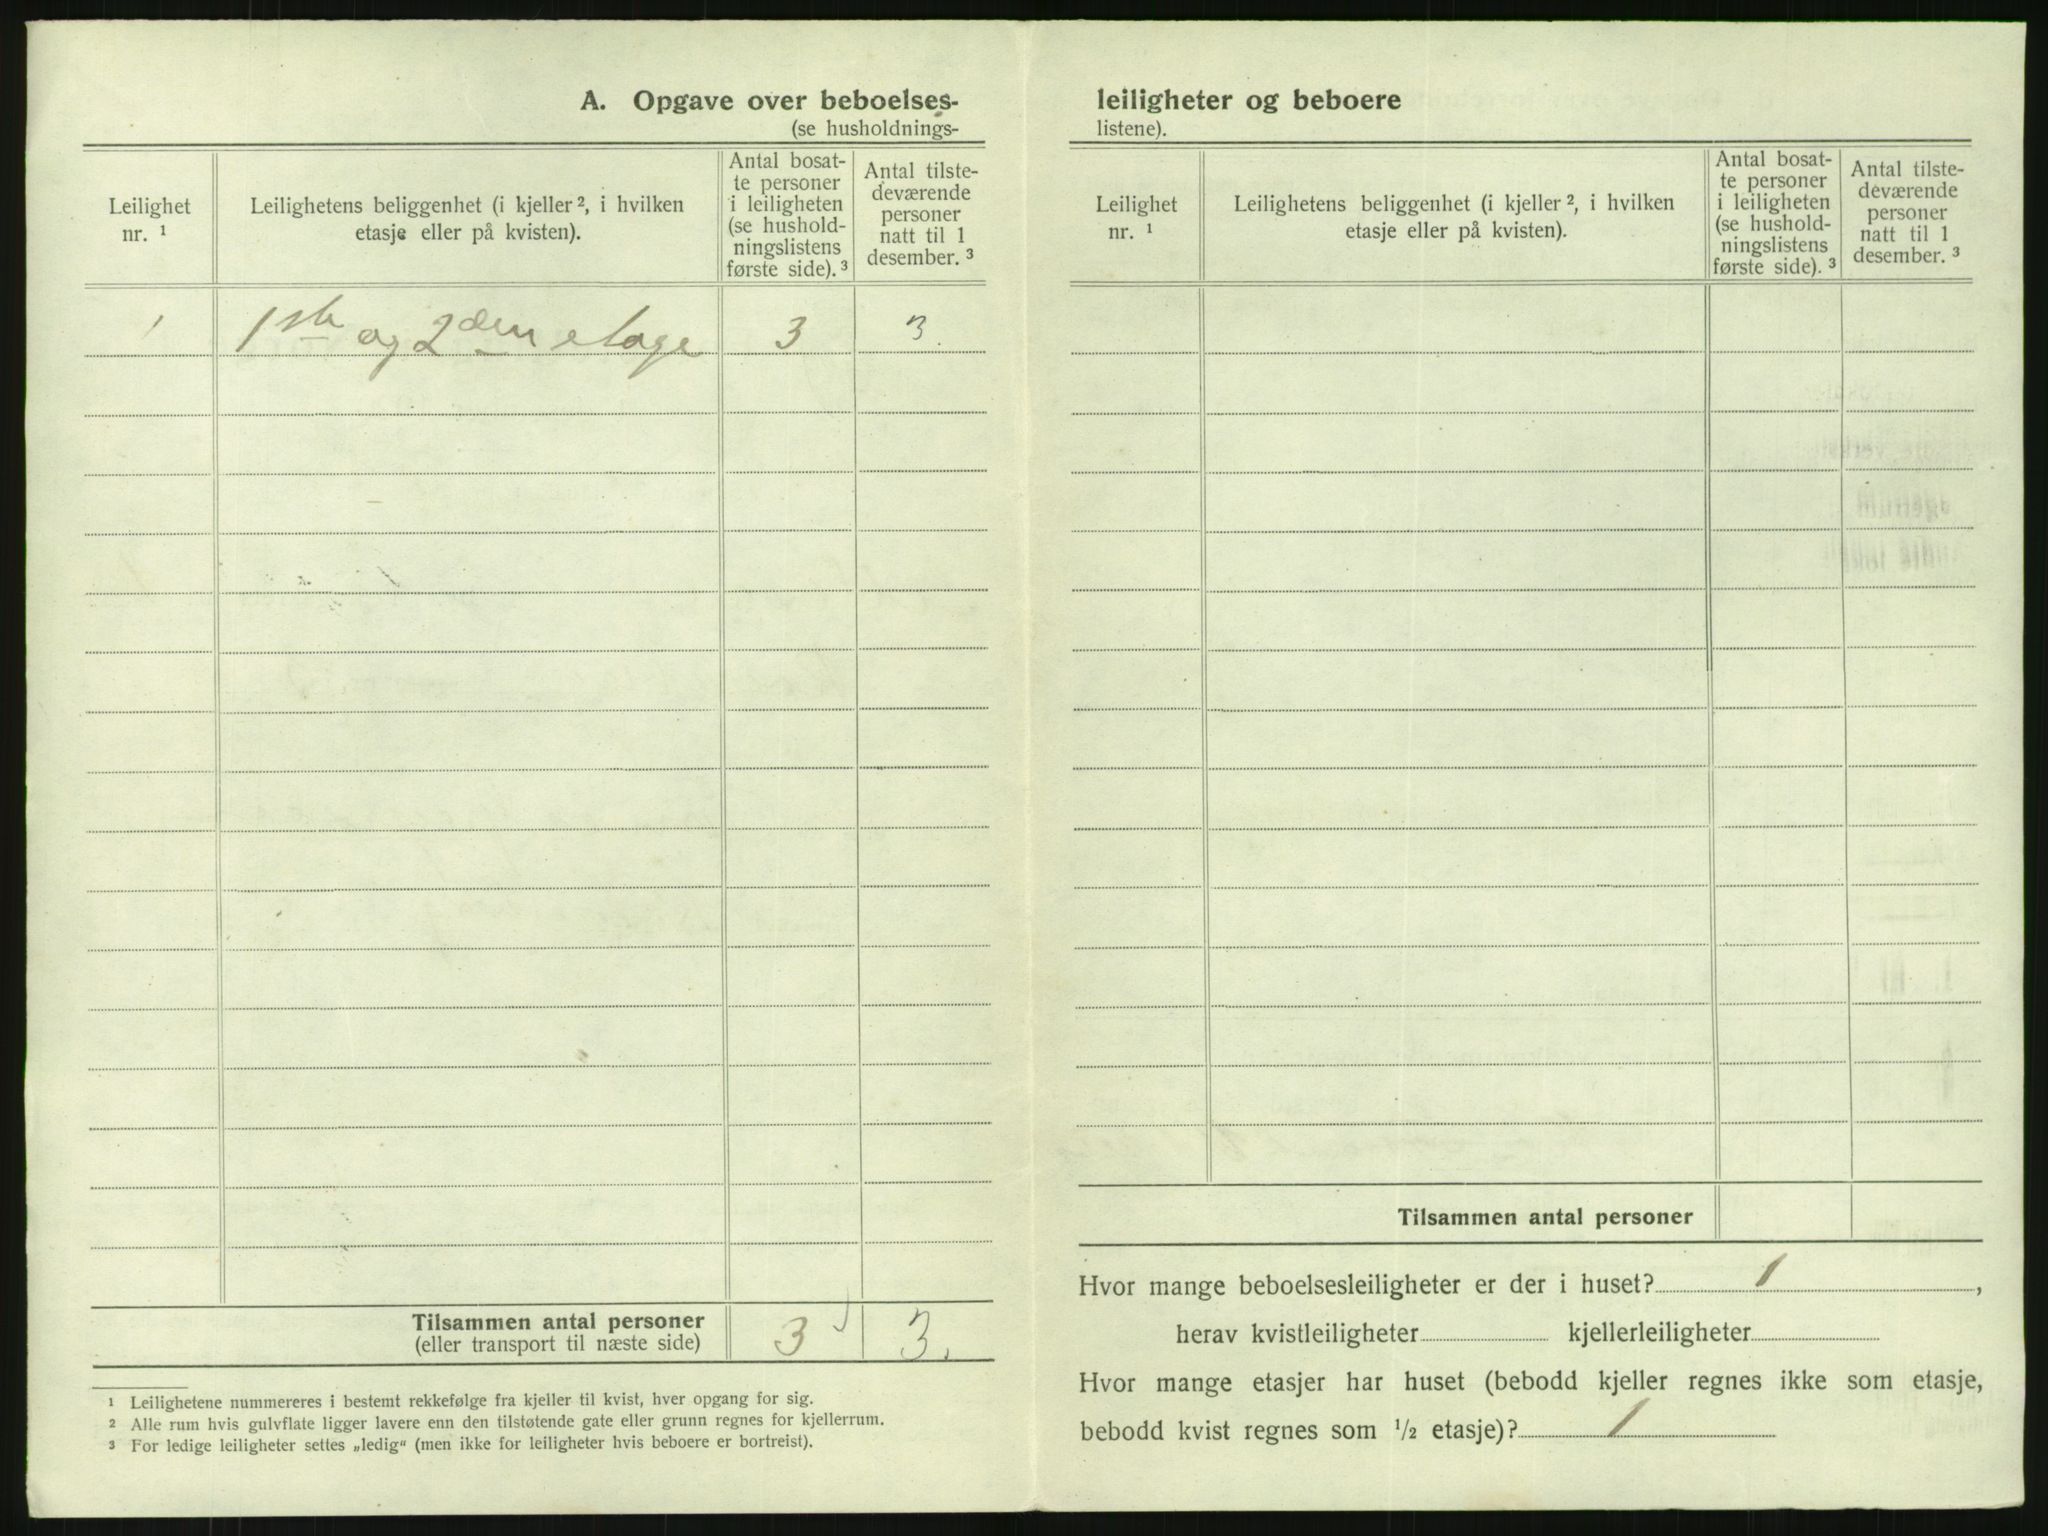 A. Opgave over beboelses-
(se husholdnings-
Leilighet
nr. ¹
Leilighetens beliggenhet (i kjeller ², i hvilken
etasje eller på kvisten).
Antal bosat-
te personer
i leiligheten
(se hushold-
ningslistens
første side). ³
Antal tilste-
deværende
personer
natt til 1
desember. ³
1 1ste og 2den etage 3 3
Tilsammen antal personer 3 3.
(eller transport til næste side)
¹ Leilighetene nummereres i bestemt rekkefølge fra kjeller til kvist, hver opgang for sig.
² Alle rum hvis gulvflate ligger lavere enn den tilstøtende gate eller grunn regnes for kjellerrum.
³ For ledige leiligheter settes „ledig“ (men ikke for leiligheter hvis beboere er bortreist).
leiligheter og beboere
listene).
Leilighet
nr. ¹
Leilighetens beliggenhet (i kjeller ², i hvilken
etasje eller på kvisten).
Antal bosat-
te personer
i leiligheten
(se hushold-
ningslistens
første side). ³
Antal tilste-
deværende
personer
natt til 1
desember. ³
Tilsammen antal personer
Hvor mange beboelsesleiligheter er der i huset? 1 ,
herav kvistleiligheter kjellerleiligheter
Hvor mange etasjer har huset (bebodd kjeller regnes ikke som etasje,
bebodd kvist regnes som ½ etasje)? 1